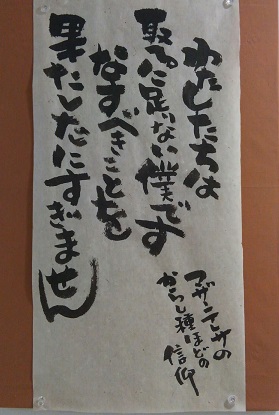 わたしたちは
取るに足りない僕です
なすべきことを
果たしたにすぎません
マザーテレサの
からし種ほどの
信仰